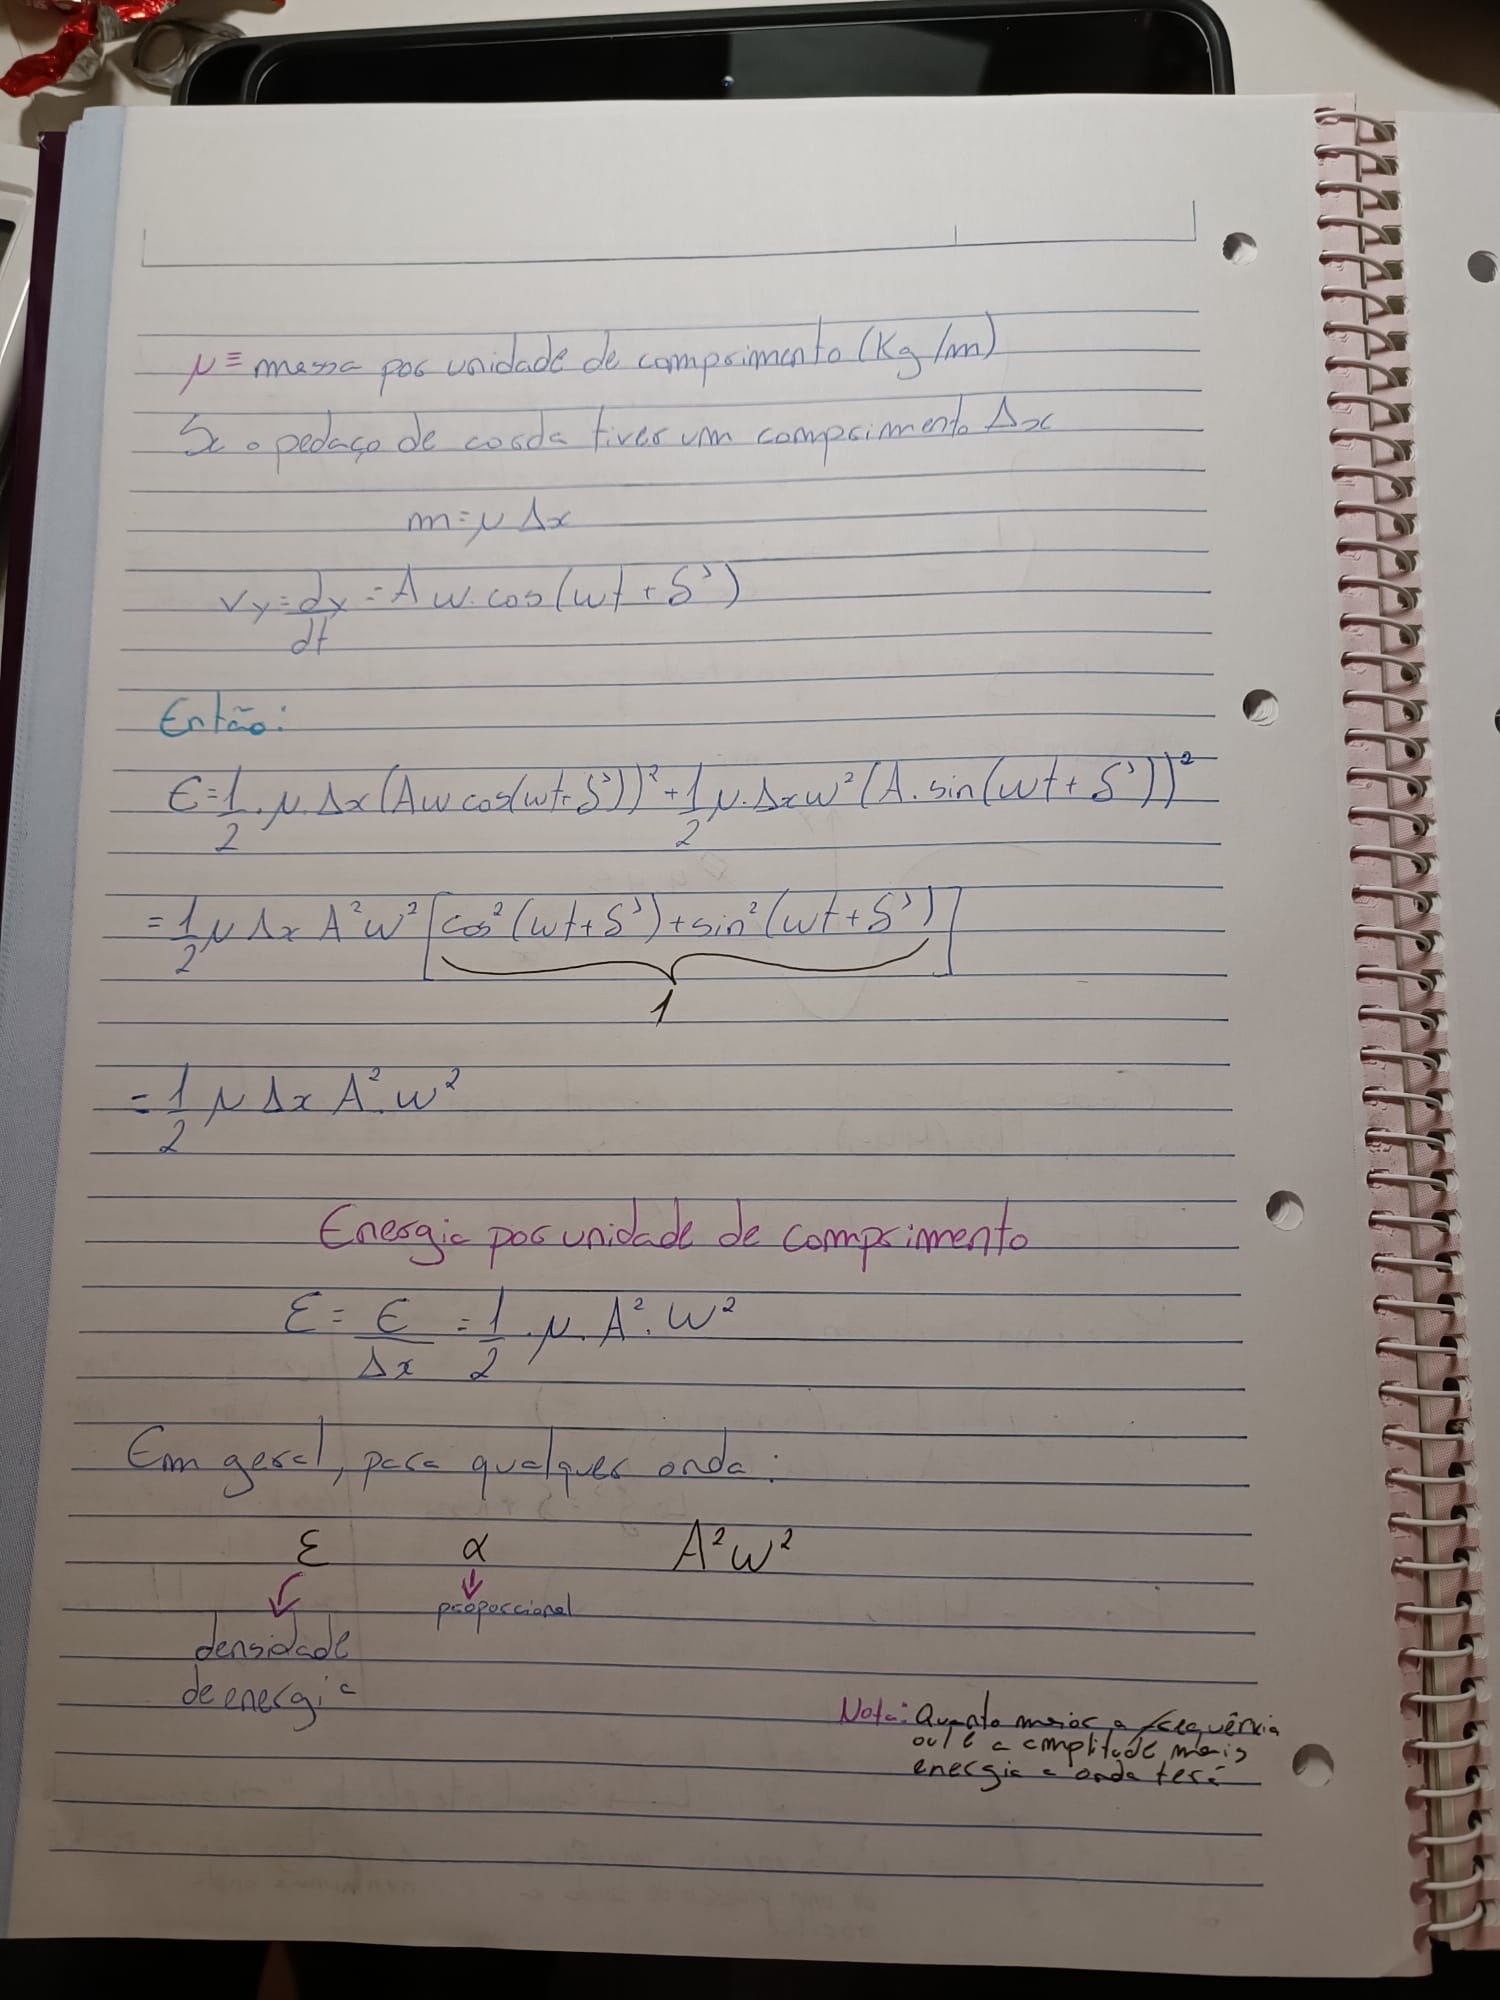 μ ≡ massa por unidade de comprimento (Kg/m)
Se o pedaço de corda tiver um comprimento Δx
m = μ Δx
vy = dy/dt = A w . cos(wt + δ')
Então:
E = 1/2 . μ . Δx (A w cos(wt + δ'))² + 1/2 μ . Δx w² (A . sin(wt + δ'))²
= 1/2 μ Δx A² w² [cos² (wt + δ') + sin² (wt + δ')]
1
= 1/2 μ Δx A² . w²
Energia por unidade de comprimento
ℰ = E/Δx = 1/2 . μ . A² . w²
Em geral, para qualquer onda:
ℰ α A² w²
proporcional
densidade
de energia
Nota: Quanto maior a frequência
ou/e a amplitude mais
energia a onda terá